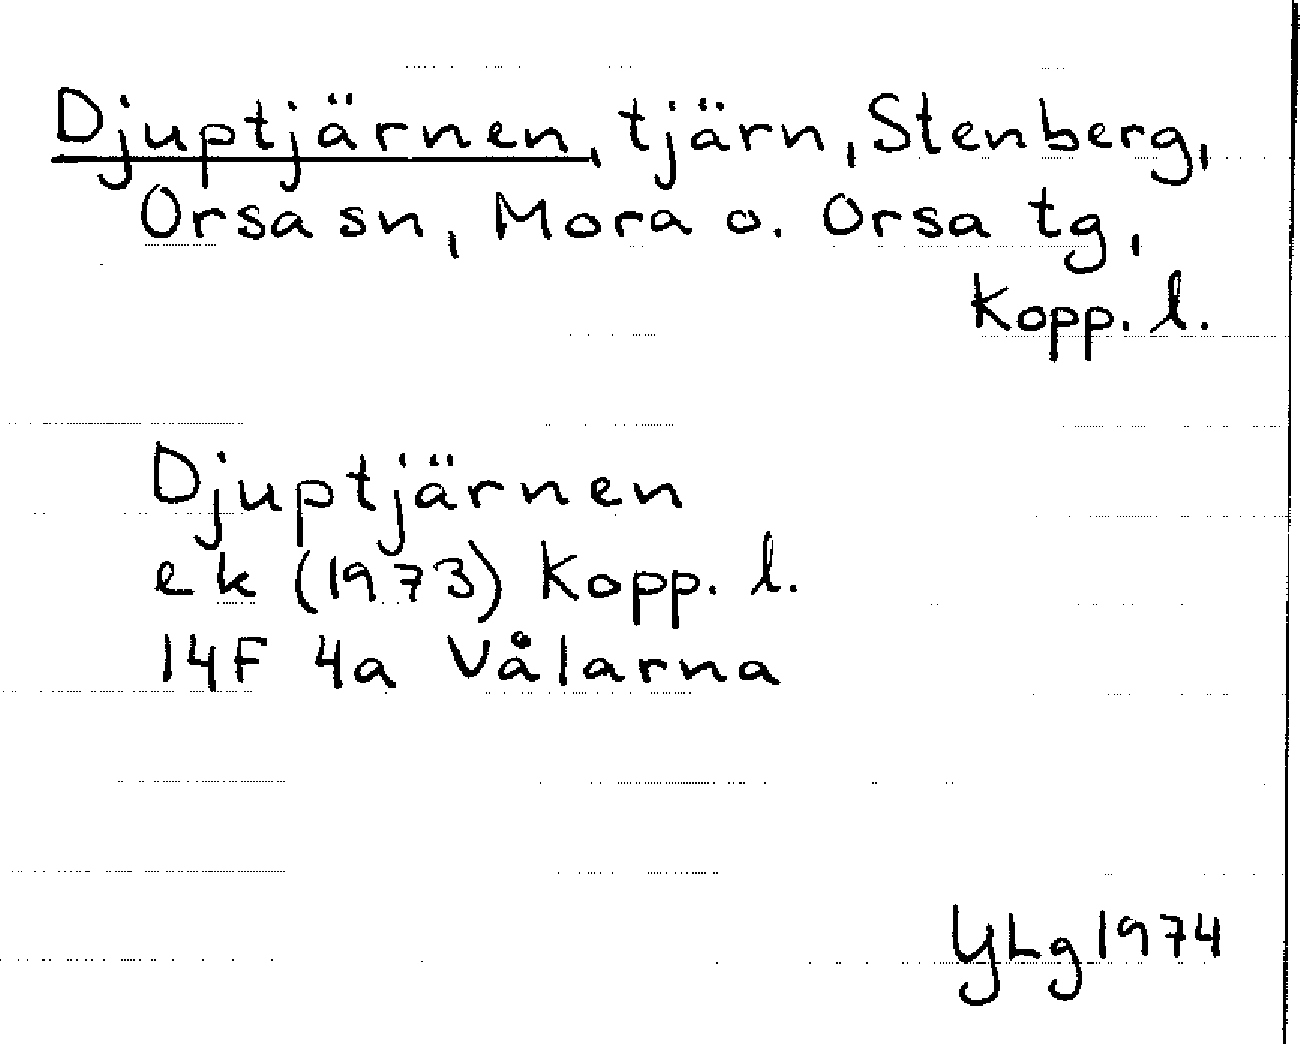 Djuptjärnen, tjärn, Stenberg,
Orsa sn, Mora o. Orsa tg,
Kopp. l.
Djuptjärnen
ek (1973) Kopp. l.
14F 4a Vålarna
YLg 1974